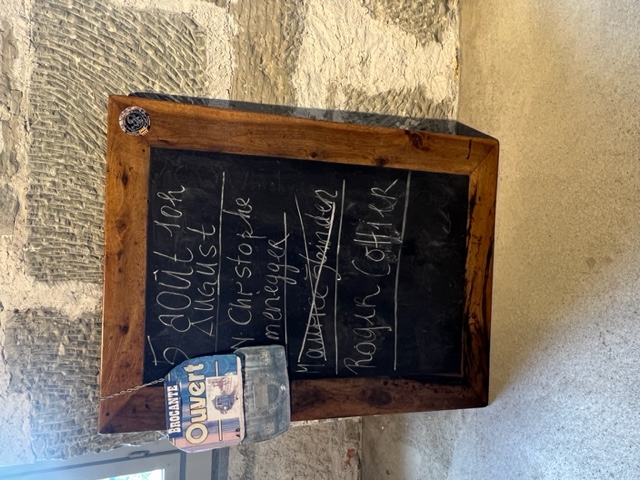 5 AOÛT 10h
AUGUST
Christophe
menegger
Maurice
Roger Cottier
BROCANTE
Ouvert